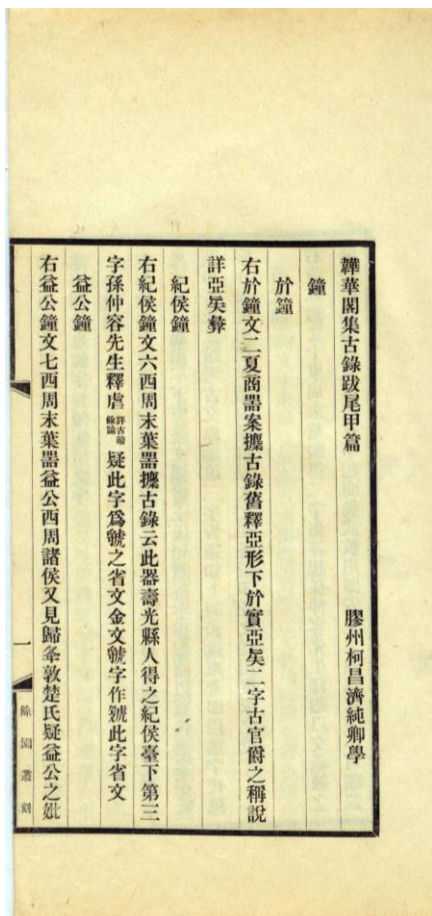 韡華閣集古錄跋尾甲篇
膠州柯昌濟純卿學
鐘
於鐘
右於鐘文二夏商器案攗古錄舊釋亞形下於實亞矣二字古官爵之稱說
詳亞矣彝
紀侯鐘
右紀侯鐘文六西周末葉器攗古錄云此器壽光縣人得之紀侯臺下第三
字孫仲容先生釋虐詳古籀餘論疑此字爲虢之省文金文虢字作虢此字省文
益公鐘
右益公鐘文七西周末葉器益公西周諸侯又見歸夆敦楚氏疑益公之妣
一
餘園叢刻